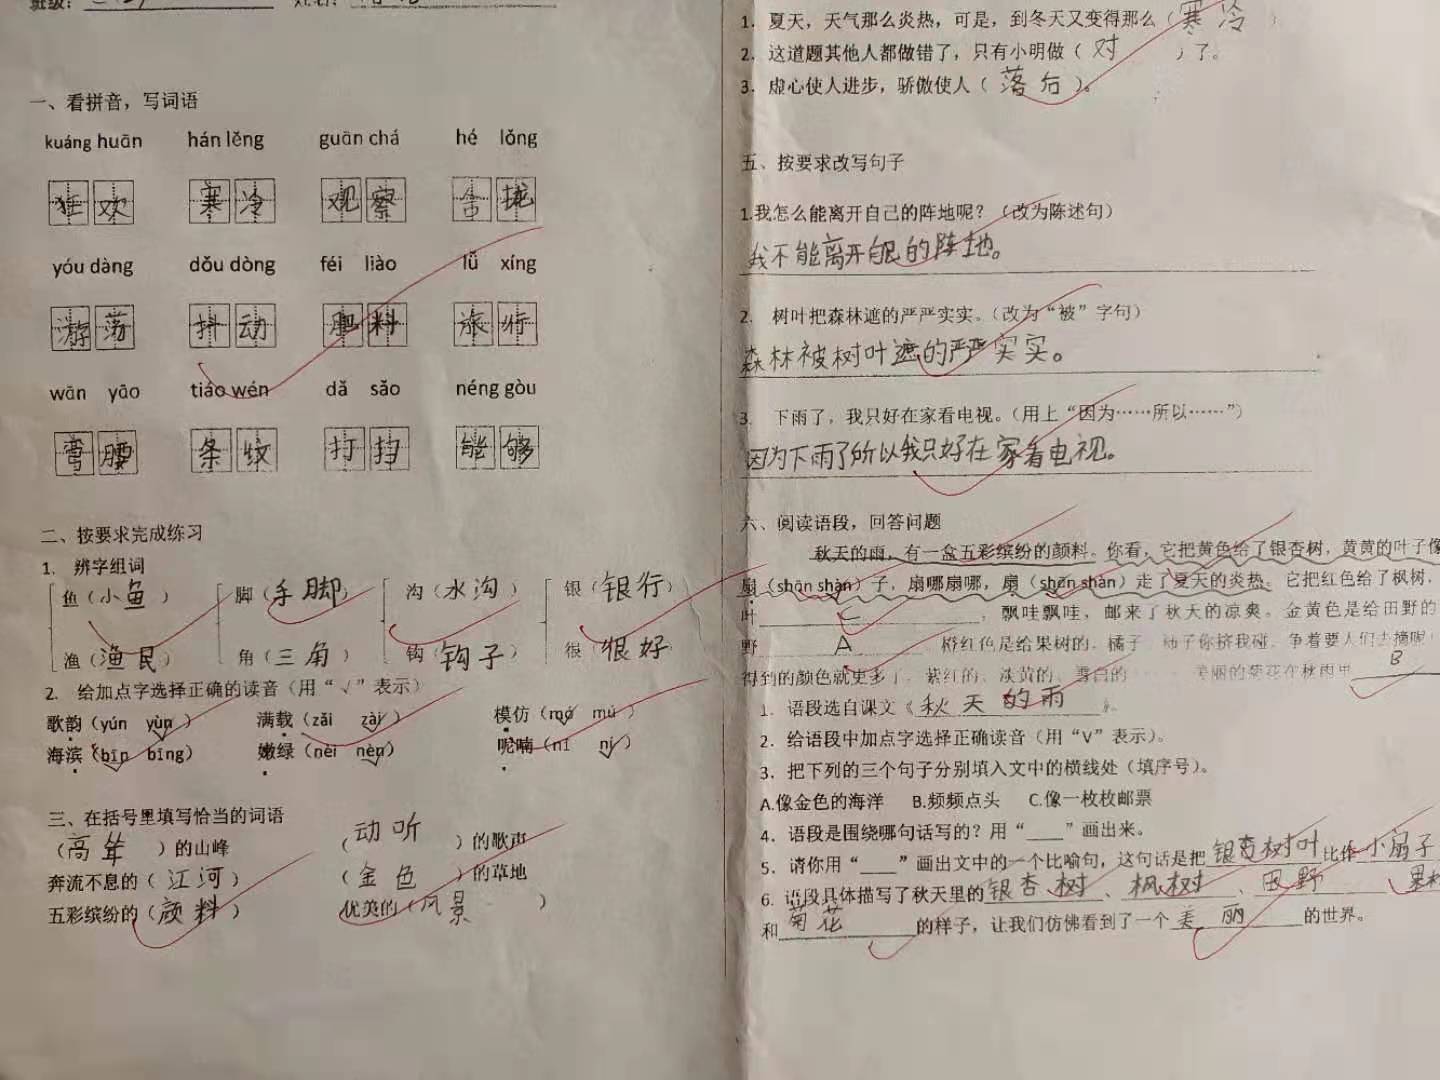 班级：
一、看拼音，写词语
kuáng huān hán lěng guān chá hé lǒng
狂欢 寒冷 观察 合拢
yóu dàng dǒu dòng féi liào lǚ xíng
游荡 抖动 肥料 旅行
wān yāo tiáo wén dǎ sǎo néng gòu
弯腰 条纹 打扫 能够
二、按要求完成练习
1. 辨字组词
鱼（小鱼） 脚（手脚） 沟（水沟） 银（银行）
渔（渔民） 角（三角） 钩（钩子） 很（很好）
2. 给加点字选择正确的读音（用“√”表示）
歌韵（yún yùn√） 满载（zǎi zài√） 模仿（mó√ mú）
海滨（bīn√ bīng） 嫩绿（nèi nèn√） 呢喃（nī ní√）
三、在括号里填写恰当的词语
（高耸）的山峰 （动听）的歌声
奔流不息的（江河） （金色）的草地
五彩缤纷的（颜料） 优美的（风景）
1. 夏天，天气那么炎热，可是，到冬天又变得那么（寒冷）
2. 这道题其他人都做错了，只有小明做（对）了。
3. 虚心使人进步，骄傲使人（落后）。
五、按要求改写句子
1.我怎么能离开自己的阵地呢？（改为陈述句）
我不能离开自己的阵地。
2. 树叶把森林遮的严严实实。（改为“被”字句）
森林被树叶遮的严严实实。
3. 下雨了，我只好在家看电视。（用上“因为……所以……”）
因为下雨了所以我只好在家看电视。
六、阅读语段，回答问题
秋天的雨，有一盒五彩缤纷的颜料。你看，它把黄色给了银杏树，黄黄的叶子像
扇（shān shàn）子，扇哪扇哪，扇（shān shàn）走了夏天的炎热。它把红色给了枫树，
叶 C ，飘哇飘哇，邮来了秋天的凉爽。金黄色是给田野的
野 A 橙红色是给果树的，橘子、柿子你挤我碰，争着要人们去摘呢！
得到的颜色就更多了，紫红的、淡黄的、雪白的……美丽的菊花在秋雨里 B
1. 语段选自课文《秋天的雨》。
2. 给语段中加点字选择正确读音（用“V”表示）。
3. 把下列的三个句子分别填入文中的横线处（填序号）。
A.像金色的海洋 B.频频点头 C.像一枚枚邮票
4. 语段是围绕哪句话写的？用“____”画出来。
5. 请你用“____”画出文中的一个比喻句，这句话是把银杏树叶比作小扇子
6. 语段具体描写了秋天里的银杏树、枫树、田野、果树
和菊花的样子，让我们仿佛看到了一个美丽的世界。